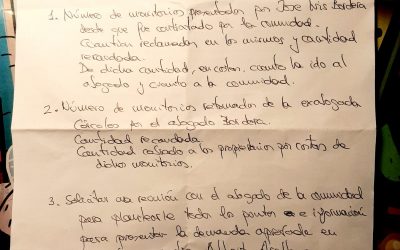 1. Número de monitorios presentados por José Luis Bordera
desde que fue contratado por la comunidad.
Cuantía reclamada en los mismos y cantidad
recaudada.
De dicha cantidad, en costas, cuanto ha ido al
abogado y cuanto a la comunidad.
2. Número de monitorios retomados de la exabogada
Cárceles por el abogado Bordera.
Cantidad recaudada
Cantidad cobrado a los propietarios por costas de
dichos monitorios.
3. Solicitar una reunión con el abogado de la comunidad
para plantearle todos los puntos e información
para presentar la demanda aprobada en